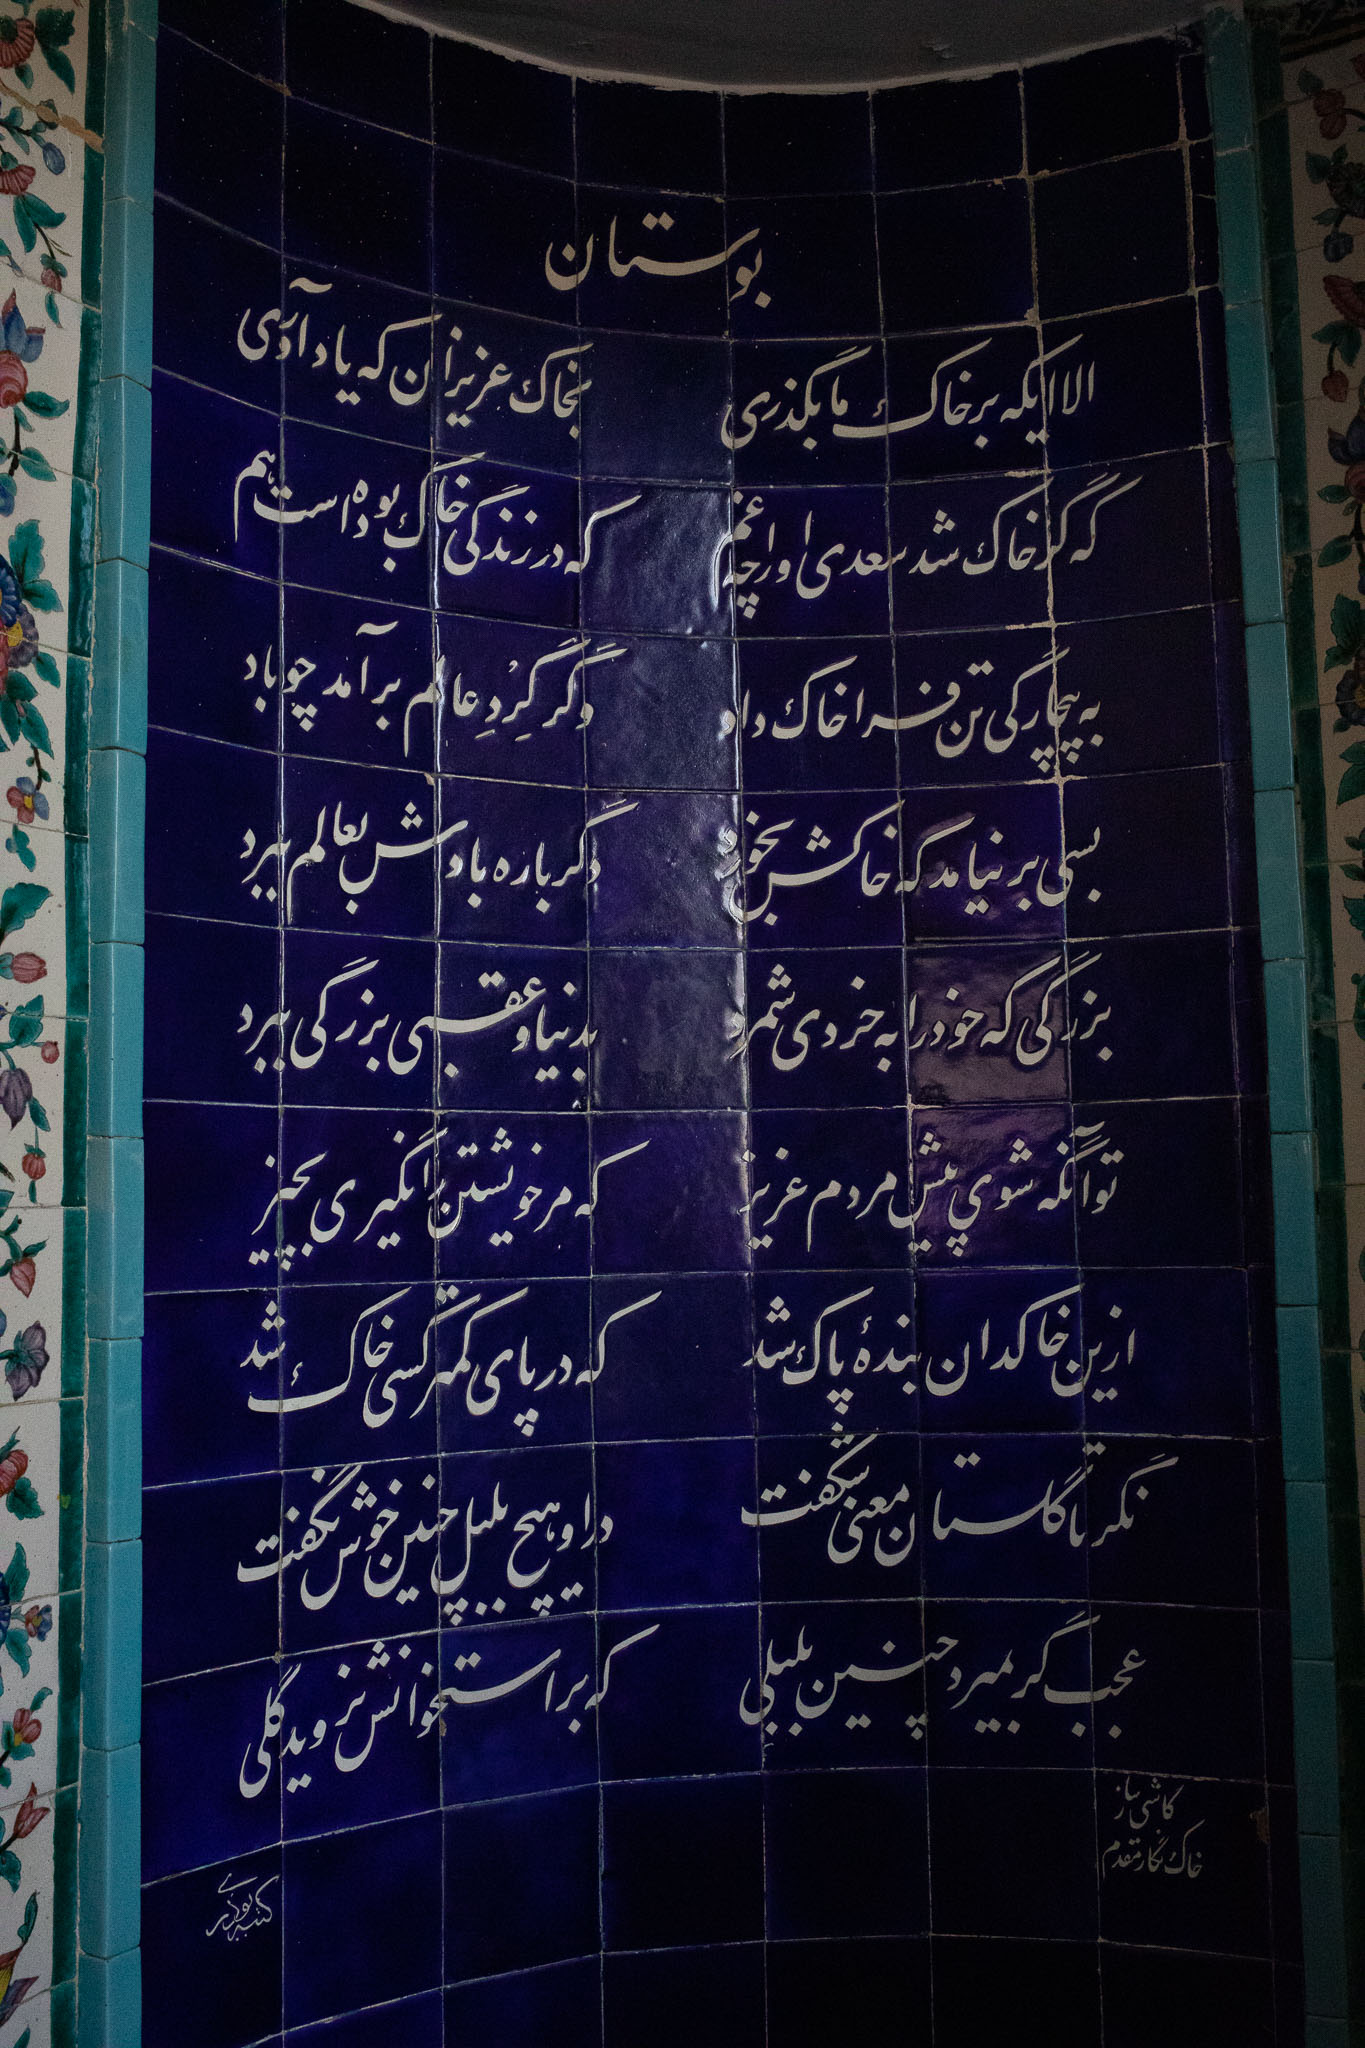 بوستان
الا ایکه بر خاک ما بگذری بخاک عزیزان که یاد آوری
که گر خاک شد سعدی او را چه غم که در زندگی خاک بوده است هم
به بیچارگی تن فرا خاک داد وگر گِردِ عالم برآمد چو باد
بسی برنیامد که خاکش بخورد دگر باره بادش بعالم ببرد
بزرگی که خود را به خردی شمرد بدنیا و عقبی بزرگی ببرد
تو آنگه شوی پیش مردم عزیز که مر خویشتن را نگیری بچیز
ازین خاکدان بندهٔ پاک شد که در پای کمتر کسی خاک شد
نگر تا گلستان معنی شکفت در او هیچ بلبل چنین خوش نگفت
عجب گر بمیرد چنین بلبلی که بر استخوانش نروید گلی
کاشی ساز
خاک نگار مقدم
کتبه بوذری